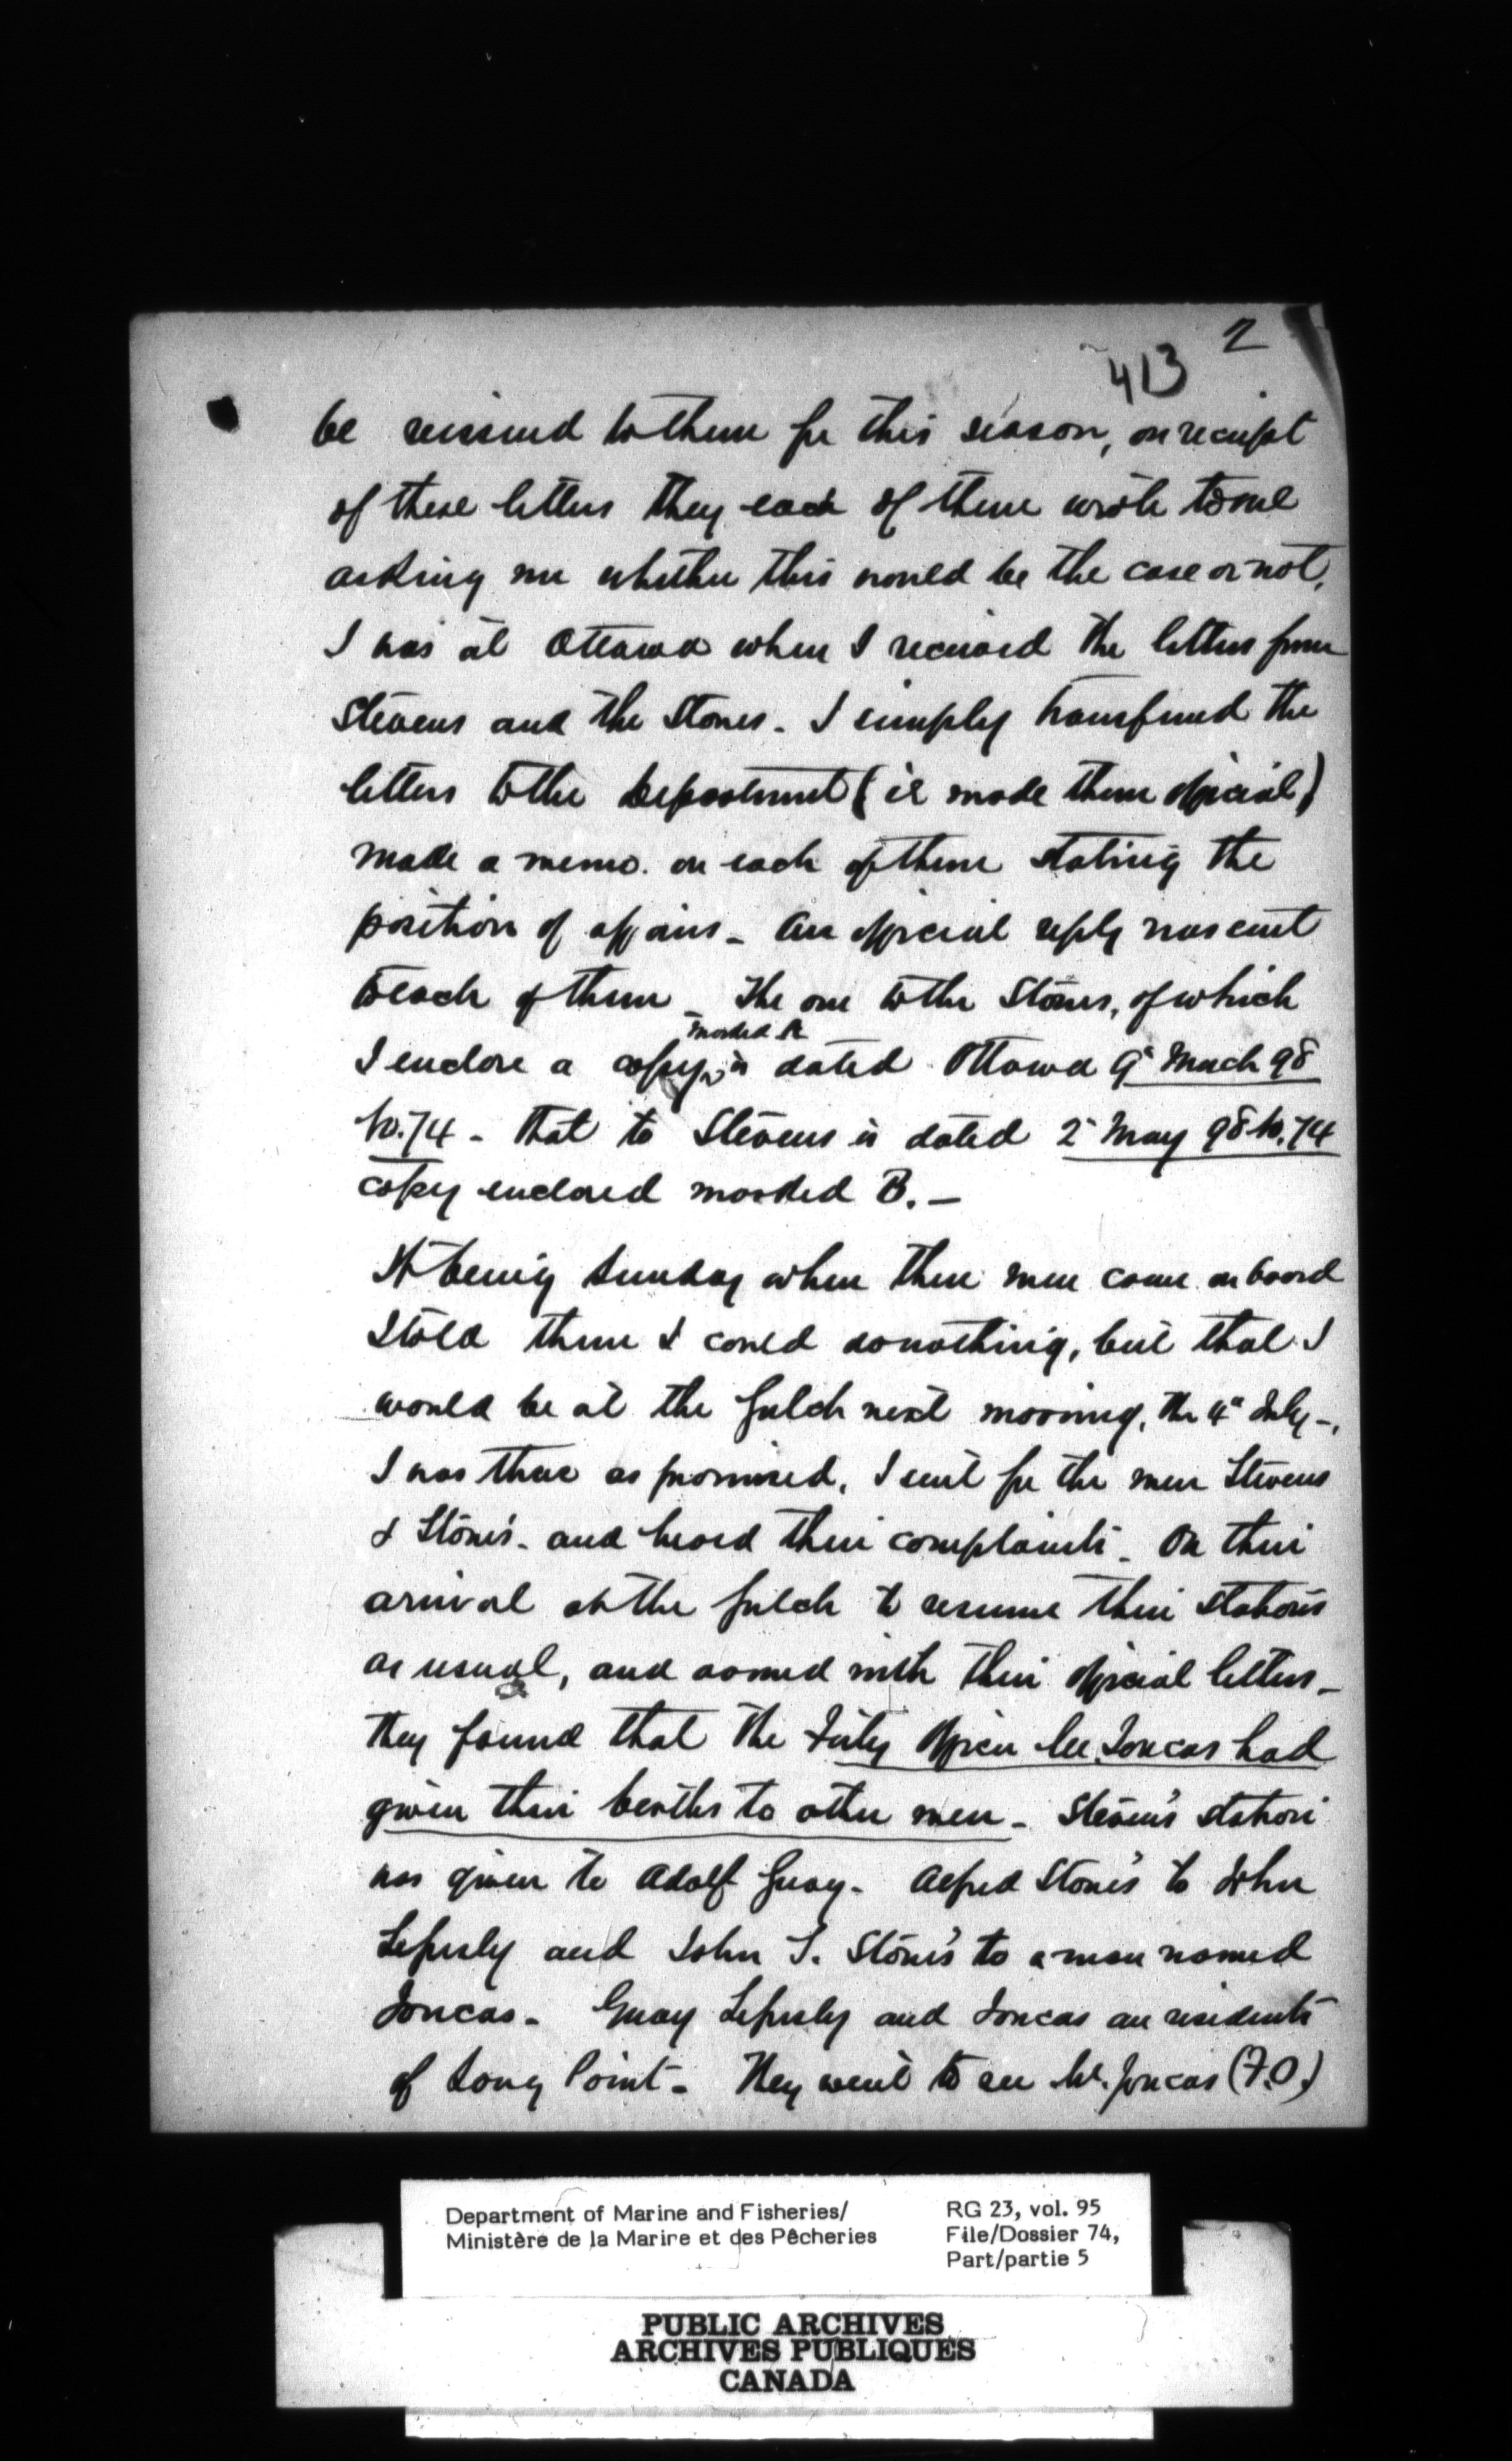 2
413
be reissued to them for this season, on receipt
of these letters they each of them wrote to me
asking me whether this would be the case or not.
I was at Ottawa when I received the letters from
Stevens and the Stones. I simply transferred the
letters to the Department (ie made them official)
made a memo. on each of them stating the
position of affairs - An official reply was sent
to each of them - The one to the Stones, of which
marked A
I enclose a copy, is dated Ottawa 9" March 98
No. 74 - that to Stevens is dated 2" May 98 No. 74
copy enclosed marked B. -
It being Sunday when these men came on board
I told them I could do nothing, but that I
would be at the Gulch next morning, the 4" July -.
I was there as promised, I sent for the men Stevens
& Stones - and heard their complaints - On their
arrival at the Gulch to resume their stations
as usual, and armed with their official letters -
they found that the Fishy Officer Mr. Joncas had
given their berths to other men - Steven's station
was given to Adolf Guay - Alfred Stone's to John
and John S. Stone's to a man named
Joncas - Guay and Joncas are residents
of Long Point - They went to see Mr. Joncas (F.O.)
Department of Marine and Fisheries/
Ministère de la Marine et des Pêcheries
RG 23, vol. 95
File/Dossier 74,
Part/partie 5
PUBLIC ARCHIVES
ARCHIVES PUBLIQUES
CANADA